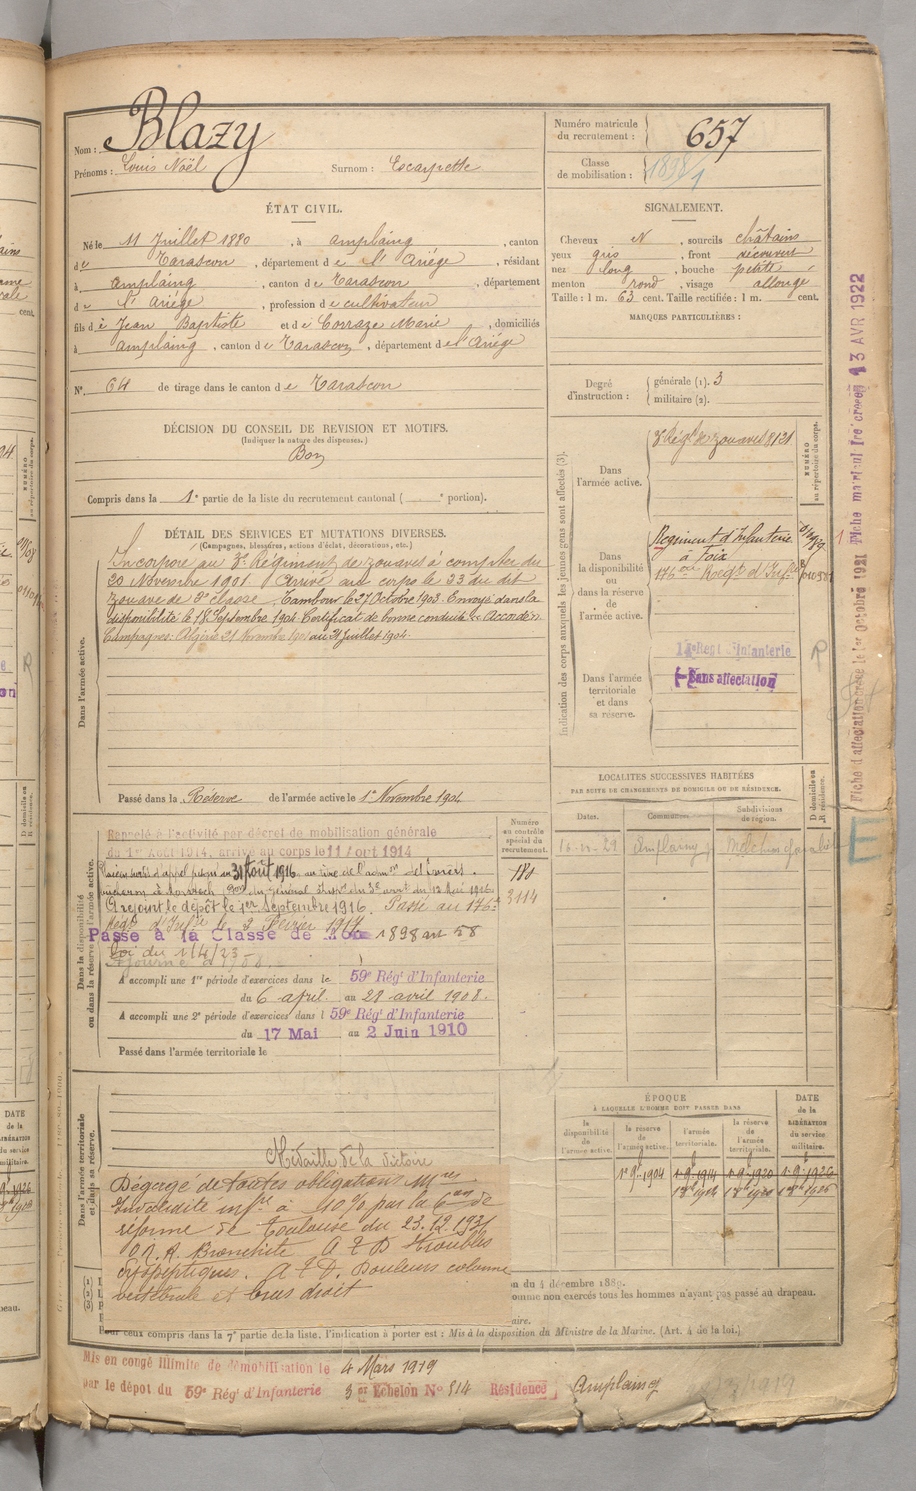 Nom : Blazy
Prénoms : Louis Noël Surnom : Escarpette
Numéro matricule du recrutement : 657
Classe de mobilisation : 1898/1
ÉTAT CIVIL.
Né le 11 Juillet 1880, à Amplaing, canton
de Tarascon, département de l'Ariège, résidant
à Amplaing, canton de Tarascon, département
de l'Ariège, profession de cultivateur
fils de Jean Baptiste et de Corraze Marie, domiciliés
à Amplaing, canton de Tarascon, département de l'Ariège
N° 64 de tirage dans le canton de Tarascon
SIGNALEMENT.
Cheveux N, sourcils châtains
yeux gris, front découvert
nez long, bouche petite
menton rond, visage allongé
Taille : 1 m. 63 cent. Taille rectifiée : 1 m. cent.
MARQUES PARTICULIÈRES :
Degré d'instruction : générale (1). 3
militaire (2).
DÉCISION DU CONSEIL DE REVISION ET MOTIFS.
(Indiquer la nature des dispenses.)
Bon
Compris dans la 1e partie de la liste du recrutement cantonal ( e portion).
DÉTAIL DES SERVICES ET MUTATIONS DIVERSES.
(Campagnes, blessures, actions d'éclat, décorations, etc.)
Dans l'armée active.
Incorporé au 3e Régiment de zouaves à compter du
20 Novembre 1901. Arrivé au corps le 23 du dit
zouave de 2e classe. Tambour le 27 Octobre 1903. Envoyé dans la
disponibilité le 18 Septembre 1904. Certificat de bonne conduite « Accordé ».
Campagnes: Algérie 21 Novembre 1901 au 31 Juillet 1904.
Passé dans la Réserve de l'armée active le 1er Novembre 1904
Indication des corps auxquels les jeunes gens sont affectés (3).
NUMÉRO au répertoire du corps.
Dans l'armée active.
3e Régt de zouaves 8121
Dans la disponibilité ou dans la réserve de l'armée active.
Régiment d'Infanterie
à Foix
176e Régt d'Infie
Dans l'armée territoriale et dans sa réserve.
Sans affectation
LOCALITÉS SUCCESSIVES HABITÉES
PAR SUITE DE CHANGEMENTS DE DOMICILE OU DE RÉSIDENCE.
Dates. Communes. Subdivisions de région. D domicile ou R résidence.
Amplaing
Dans la disponibilité ou dans la réserve de l'armée active.
Numéro au contrôle spécial du recrutement.
Rappelé à l'activité par décret de mobilisation générale
du 1er Août 1914, arrivé au corps le 11 Août 1914
31 Août 1916
A rejoint le dépôt le 1er Septembre 1916. Passé au 176e
Régt d'Infie le 2 Février 1917
3114
Passé à la Classe de 1898 art 58
Loi du 1/4/23
A accompli une 1re période d'exercices dans le 59e Régt d'Infanterie
du 6 avril au 28 avril 1908.
A accompli une 2e période d'exercices dans l 59e Régt d'Infanterie
du 17 Mai au 2 Juin 1910
Passé dans l'armée territoriale le
Dans l'armée territoriale et dans sa réserve.
ÉPOQUE
À LAQUELLE L'HOMME DOIT PASSER DANS
la disponibilité de l'armée active. la réserve de l'armée active. l'armée territoriale. la réserve de l'armée territoriale. DATE de la LIBÉRATION du service militaire.
1er 9bre 1904 1er 9bre 1914 1er 9bre 1920 1er 9bre 1926
Médaille de la victoire
Dégagé de toutes obligations Mres
Invalidité infre à 10% par la con de
réforme de Toulouse du 23.12.1931
O.N.A. Bronchite A & D Troubles
dyspeptiques. A & D. Douleurs colonne
vertébrale et bras droit
n du 4 décembre 1889.
omme non exercés tous les hommes n'ayant pas passé au drapeau.
aire.
Pour ceux compris dans la 7e partie de la liste, l'indication à porter est : Mis à la disposition du Ministre de la Marine. (Art. 4 de la loi.)
Mis en congé illimité de démobilisation le 4 Mars 1919
par le dépôt du 59e Régt d'Infanterie 3e Echelon N° 814 Résidence Amplaing
Fiche d'affectation créée le 1er Octobre 1921 Fiche matricule créée 13 AVR 1922